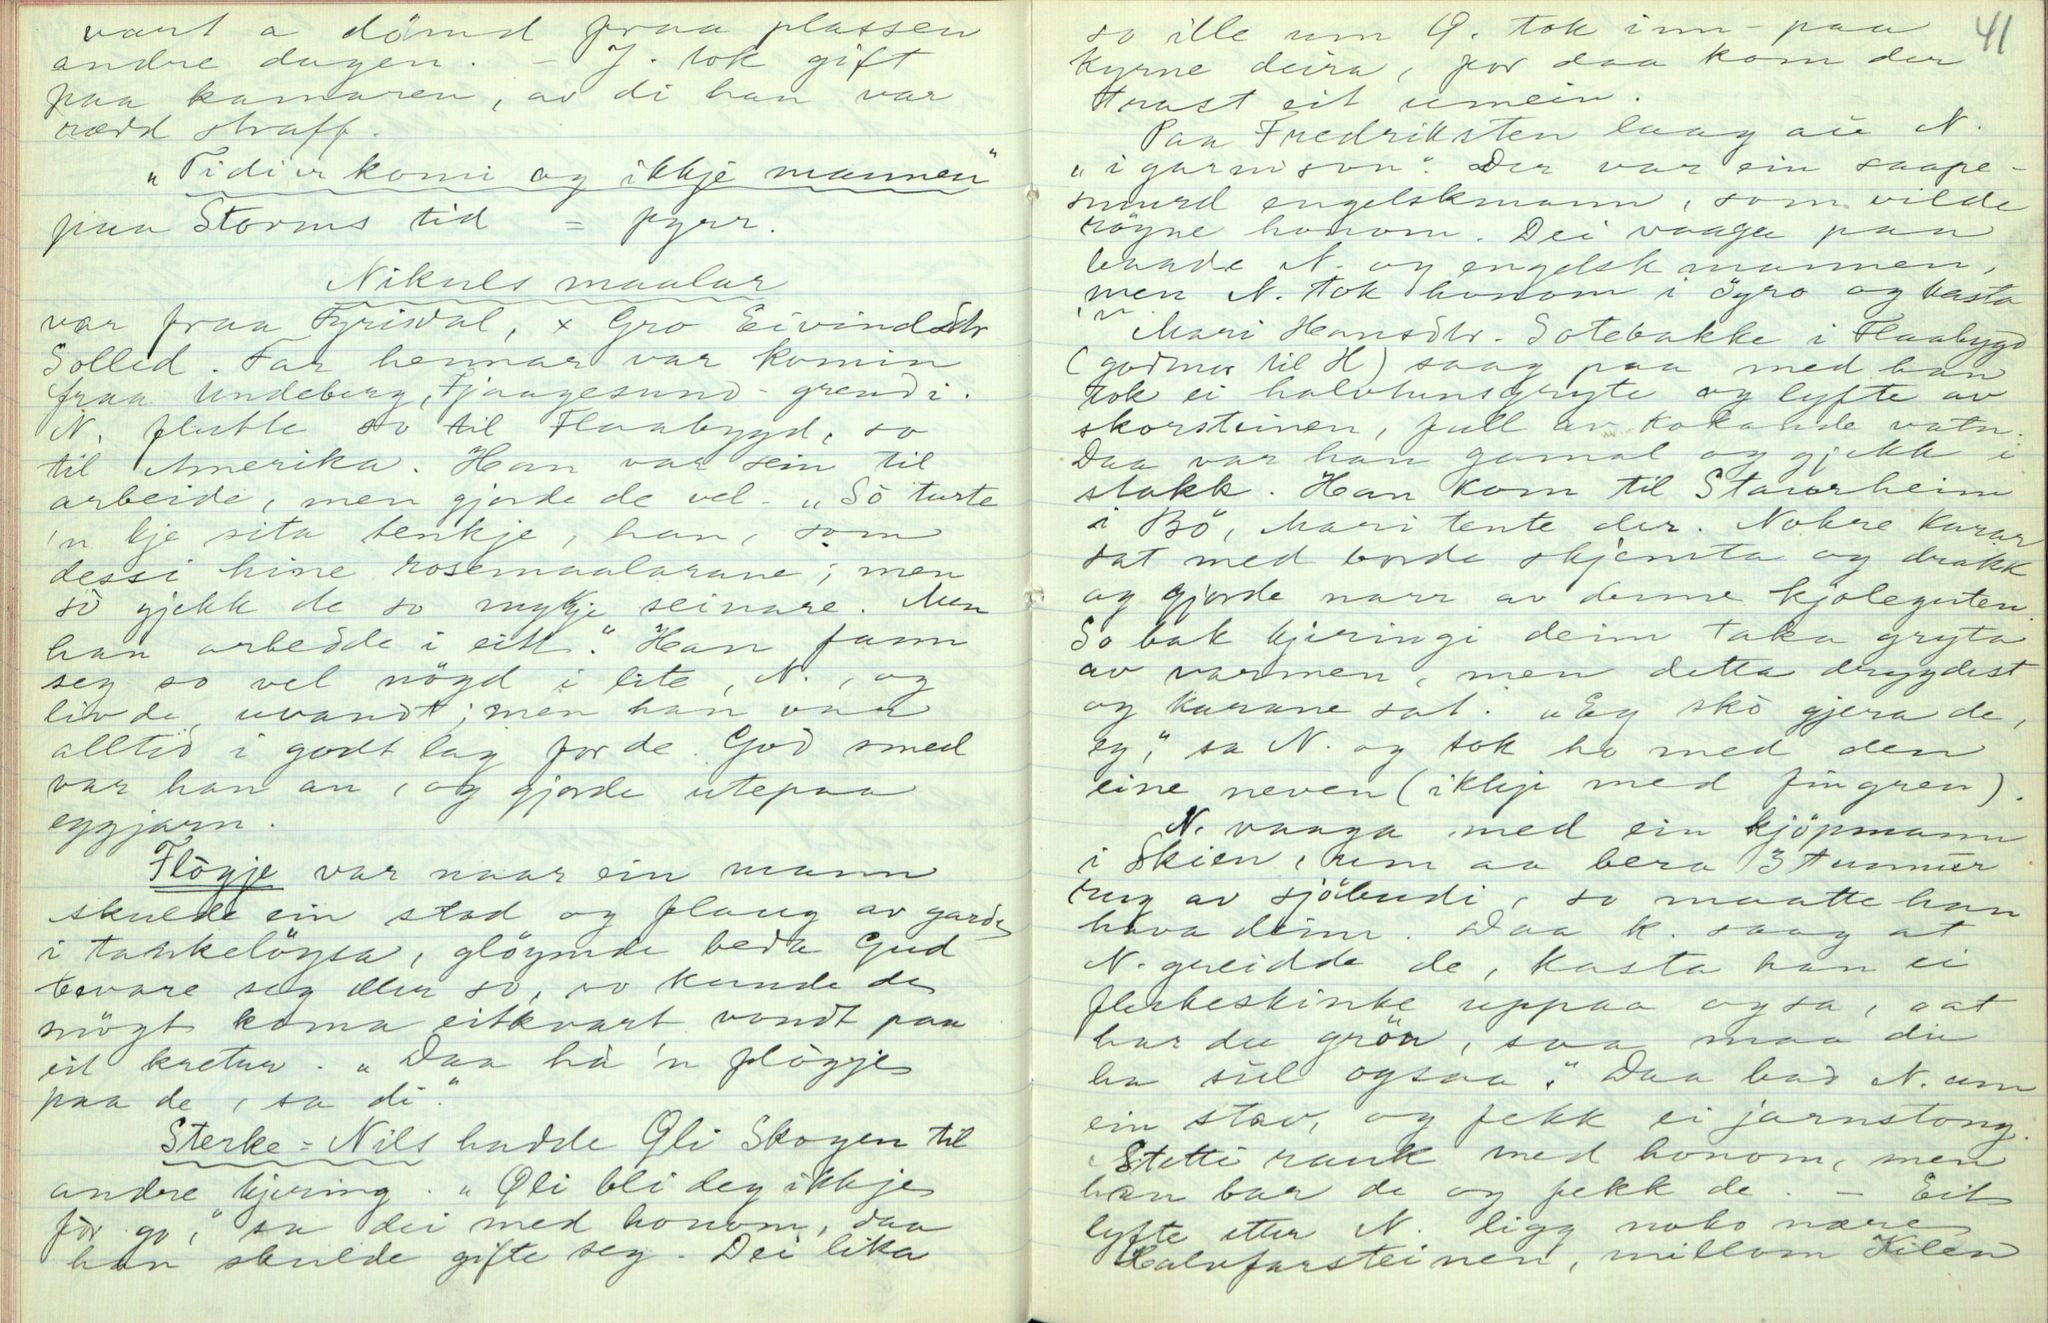 vart a dömd fraa plassen
andre dagen. – J. tok gift
paa kamaren, av di han var
rædd straff.
"Tidi er komi og ikkje mannen"
paa Storms tid = fyrr.
Nikuls maalar
var fraa Fyrisdal, x Gro Eivindsdtr
Solled. Far hennar var komin
fraa Undeberg, Fjaagesund-grendi.
N. flutte so til Flaabygd, so
til Amerika. Han var sein til
arbeide, men gjorde de vel. "Sò turte
'n kje sita tenkje, han, som
dessi hine rosemaalarane; men
sò gjekk de so mykje seinare. Men
han arbeidde i eitt." Han fann
seg so vel nögd i lite, N., og
livde uvandt; men han var
alltid i godt lag for de. God smed
var han au, og gjorde utepaa
eggjarn.
Flògje var naar ein mann
skulde ein stad og flaug av garde
i tankelöysa, glöymde beda Gud
bevare seg eller so, so kunde de
snögt koma eitkvart vondt paa
eit kretur. "Daa hà 'n flògje
paa de, sa di."
Sterke-Nils hadde Qli Skogen til
andre kjering. "Qli bli deg ikkje
for go," sa dei med honom, daa
han skulde gifte seg. Dei lika
so ille um Q. tok inn-paa 41
kyrne deira, for daa kom der
strast eit umein.
Paa Fredriksten laag au N.
"i garnison". Der var ein saape-
smurd engelskmann, som vilde
röyne honom. Dei vaaga paa
baade N. og engelskmannen,
men N. tok honom i öyro og kasta
'n.
Mari Hansdtr. Sotebakke i Flaabygd
(godmor til H) saag paa med han
tok ei halvtunsgryte og lyfte av
skorsteinen, full av kokande vatn.
Daa var han gamal og gjekk i
stakk. Han kom til Staurheim
i Bö, Mari tente der. Nokre karar
sat med borde skjemta og drakk
og gjorde narr av denne kjoleguten.
So bak kjeringi deim taka gryta
av varmen, men detta drygdest
og karane sat. "Eg skò gjera de,
eg," sa N. og tok ho med den
eine neven (ikkje med fingren).
N. vaaga med ein kjöpmann
i Skien, um aa bera 3 tunnur
rug av sjöbudi, so maatte han
hava deim. Daa k. saag at
N. greidde de, kasta han ei
fleskeskinke uppaa ogsa, "at
har du grön, saa maa du
ha sul ogsaa". Daa bad N. um
ein stav, og fekk ei jarnstong.
Stotti rauk med honom, men
han bar de og fekk de. – Eit
lyfte etter N. ligg noko nære
Halvfarsteinen, millom Kilen